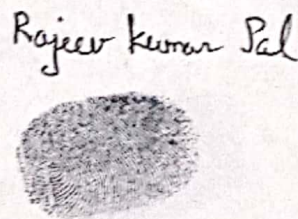 Rajeev Kumar Pal